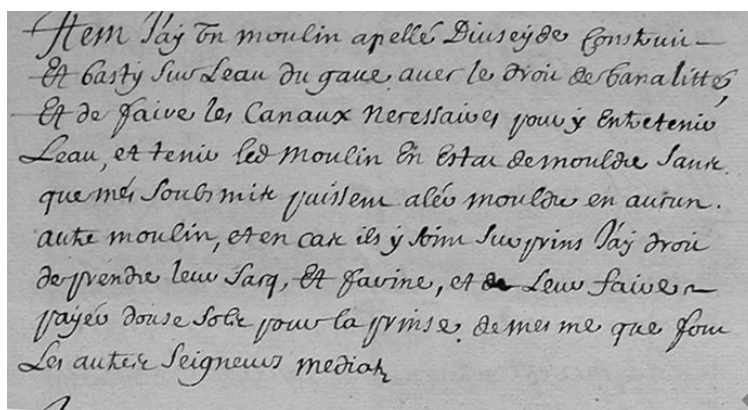 Item J'ay un moulin apellé Diuseyde Construit
Et basty sur Leau du gaue auec le droit de banalitté,
Et de faire les Canaux Necessaires pour y Entretenir
Leau, et tenir led moulin En Estat de mouldre sans
que més soubsmis puissent alér mouldre en aucun.
autre moulin, et en cas ils y soint surprins J'ay droit
de prendre leur sacq, Et farine, et de Leur faire
payér douse sols pour la prinse. de mesme que font
Les autres Seigneurs mediatz